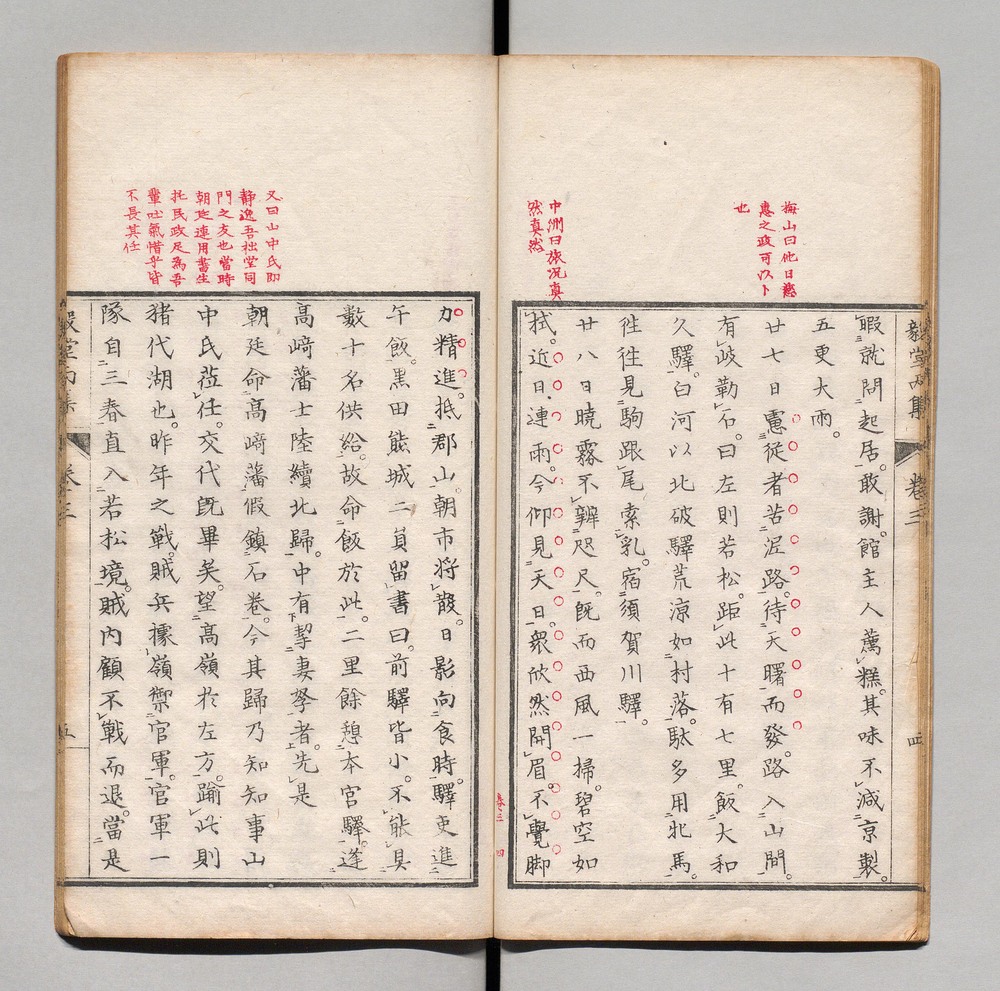 梅山曰他日慈
惠之政可以卜
也
中洲曰旅况真
然真然
毅堂丙集
卷三
四
暇就問起居。敢謝。館主人薦糕。其味不減京製。
五更大雨。
廿七日。憲從者苦涩路。待天曙而發。路入山間。
有岐勒石。曰左則若松。距此十有七里。飯大和
久驛。白河以北破驛荒涼如村落。駄多用牝馬。
徃徃見駒跟尾索乳。宿須賀川驛。
廿八日曉霧不辨咫尺。既而西風一掃。碧空如
拭。近日連雨。今仰見天日。衆欣然開眉。不覺脚
卷三 四
又曰山中氏即
靜逸吾拙堂同
門之友也當時
朝廷連用書生
托民政足為吾
輩吐氣惜乎皆
不長其任
加精進。抵郡山。朝市將散。日影向食時。驛吏進
午飯。黑田熊城二員留書曰。前驛皆小。不能具
數十名供給。故命飯於此。二里餘憩本宮驛。逢
高﨑藩士陸續北歸。中有挈妻孥者。先是
朝廷命高﨑藩假鎮石卷。今其歸乃知知事山
中氏莅任。交代既畢矣。望高嶺於左方。踰此則
猪代湖也。昨年之戰。賊兵據嶺禦官軍。官軍一
隊自三春直入若松境。賊内顧不戰而退。當是
卷三
五